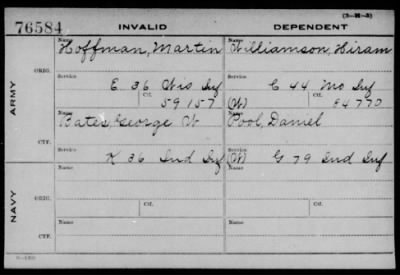 (3-H-3)
76584 INVALID DEPENDENT
Name Name
Hoffman, Martin Williamson, Hiram
ARMY
ORIG.
Service Service
E 36 Wis Inf C 44 Mo Inf
Ctf. Ctf.
59157 (W) 54770
Name Name
Bates George W Pool, Daniel
CTF.
Service Service
K 36 Ind Inf (W) G 79 Ind Inf
Name Name
NAVY
ORIG.
Service Service
Ctf. Ctf.
Name Name
CTF.
Service Service